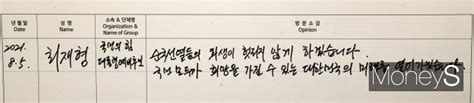 년월일
성 명
Name
소속 & 단체명
Organization &
Name of Group
방 문 소 감
Opinion
2021.
8.5.
최재형
국민의 힘
대통령예비후보
순국선열들의 희생이 헛되지 않게 하겠습니다.
국민 모두가 희망을 가질 수 있는 대한민국의 미래를 열어가겠습니다
MoneyS